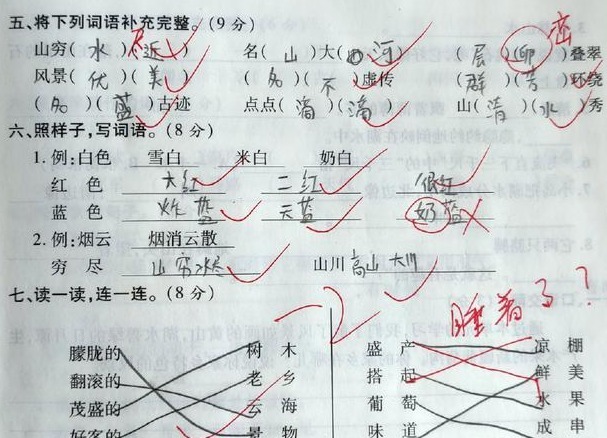 五、将下列词语补充完整。(9分)
山穷(水)(近) 名(山)大(河) (层)(卵)叠翠 峦
风景(优)(美) (名)(不)虚传 (群)(芳)环绕
(名)(蓝)古迹 点点(滴)(滴) 山(清)(水)秀
六、照样子,写词语。(8分)
1. 例:白色 雪白 米白 奶白
红色 大红 二红 很红
蓝色 炸蓝 天蓝 奶蓝
2. 例:烟云 烟消云散
穷尽 山穷水尽 山川 高山大川
七、读一读,连一连。(8分) -2 睡着了?
朦胧的 树木 盛产 凉棚
翻滚的 老乡 搭起 鲜美
茂盛的 云海 葡萄 水果
好客的 景物 味道 成串